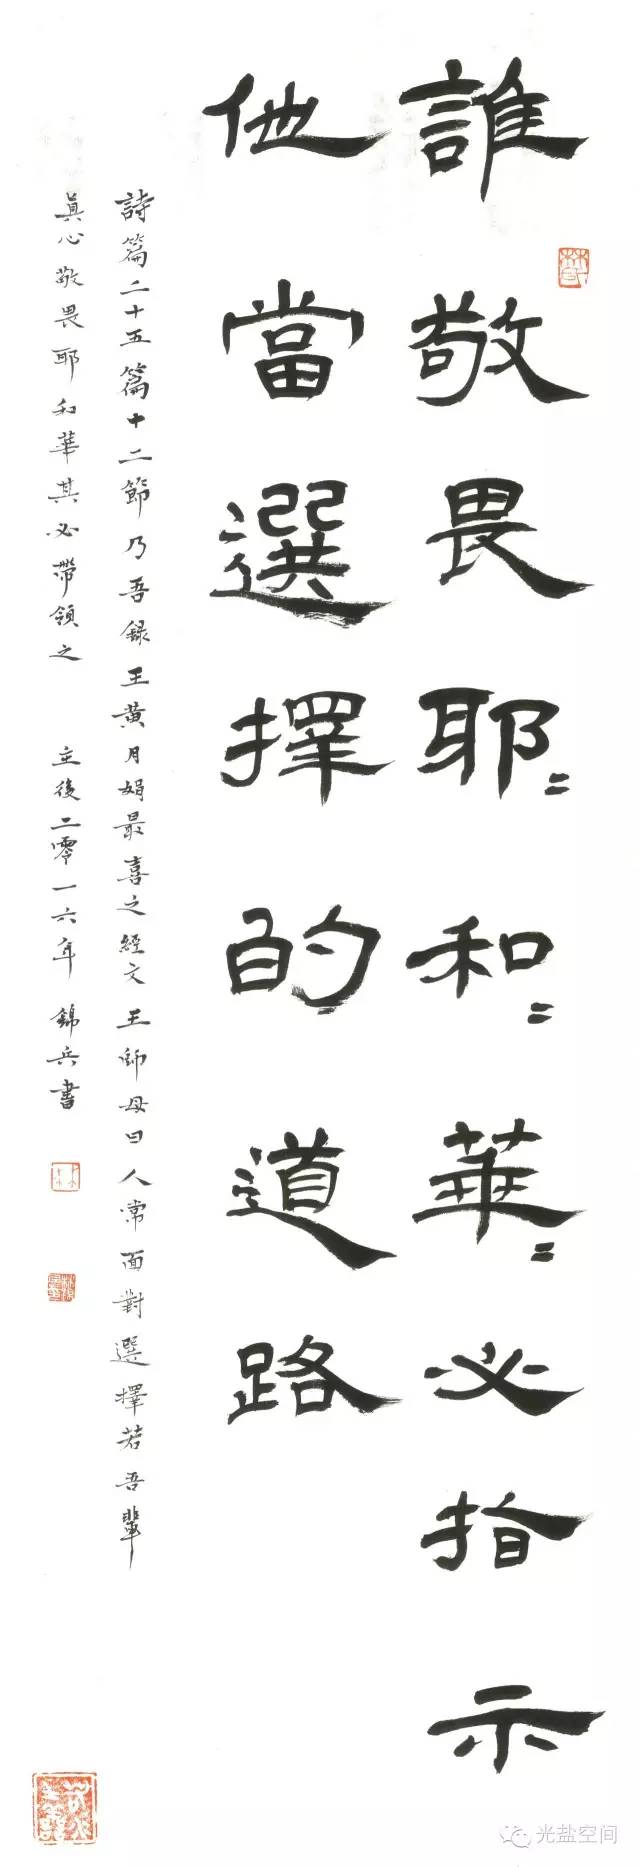 誰敬畏耶〻和〻華〻必指示
他當選擇的道路
詩篇二十五篇十二節乃吾録王黃月娟最喜之經文王師母曰人常面對選擇若吾輩
眞心敬畏耶和華其必帶領之 主後二零一六年 錦兵書
光盐空间